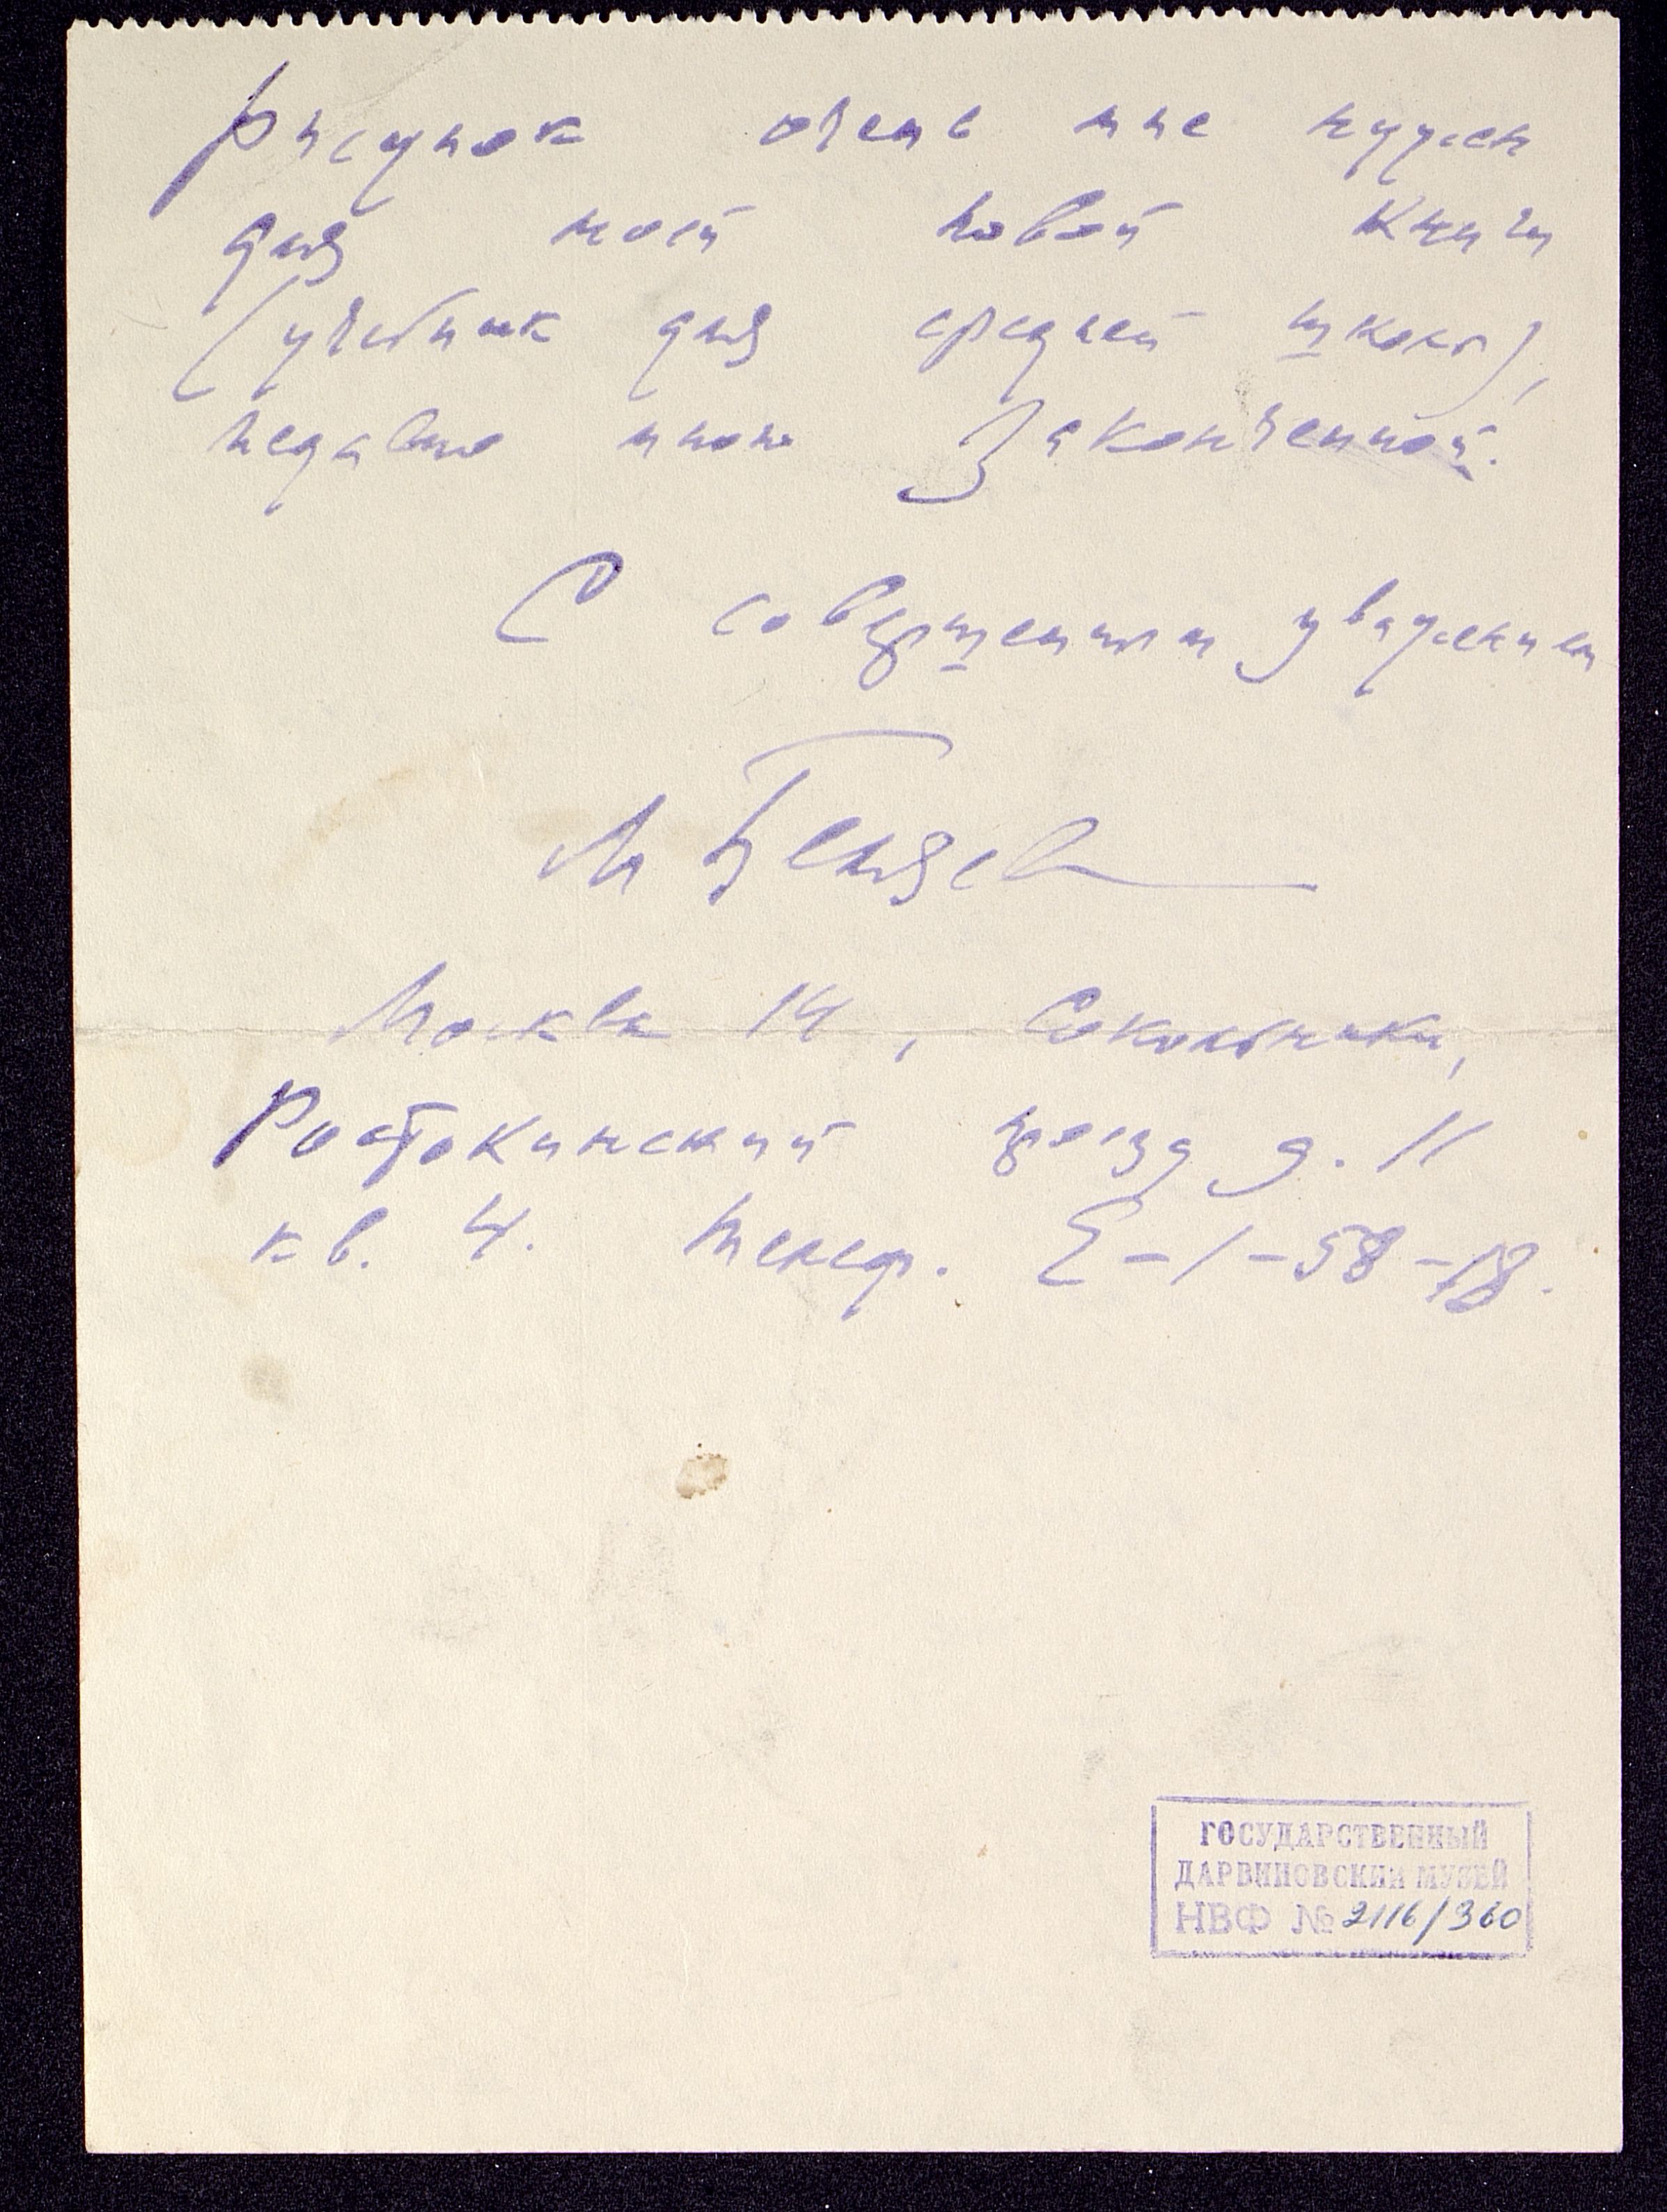 Рисунок очень мне нужен
для моей новой книги
(учебник для средней школы),
недавно мною законченной.
С совершенным уважением
М Беляев
Москва 14, Сокольники,
Ростокинский проезд д. 11
кв. 4. Телеф. Е-1-58-18.
ГОСУДАРСТВЕННЫЙ
ДАРВИНОВСКИЙ МУЗЕЙ
НВФ № 2116/360